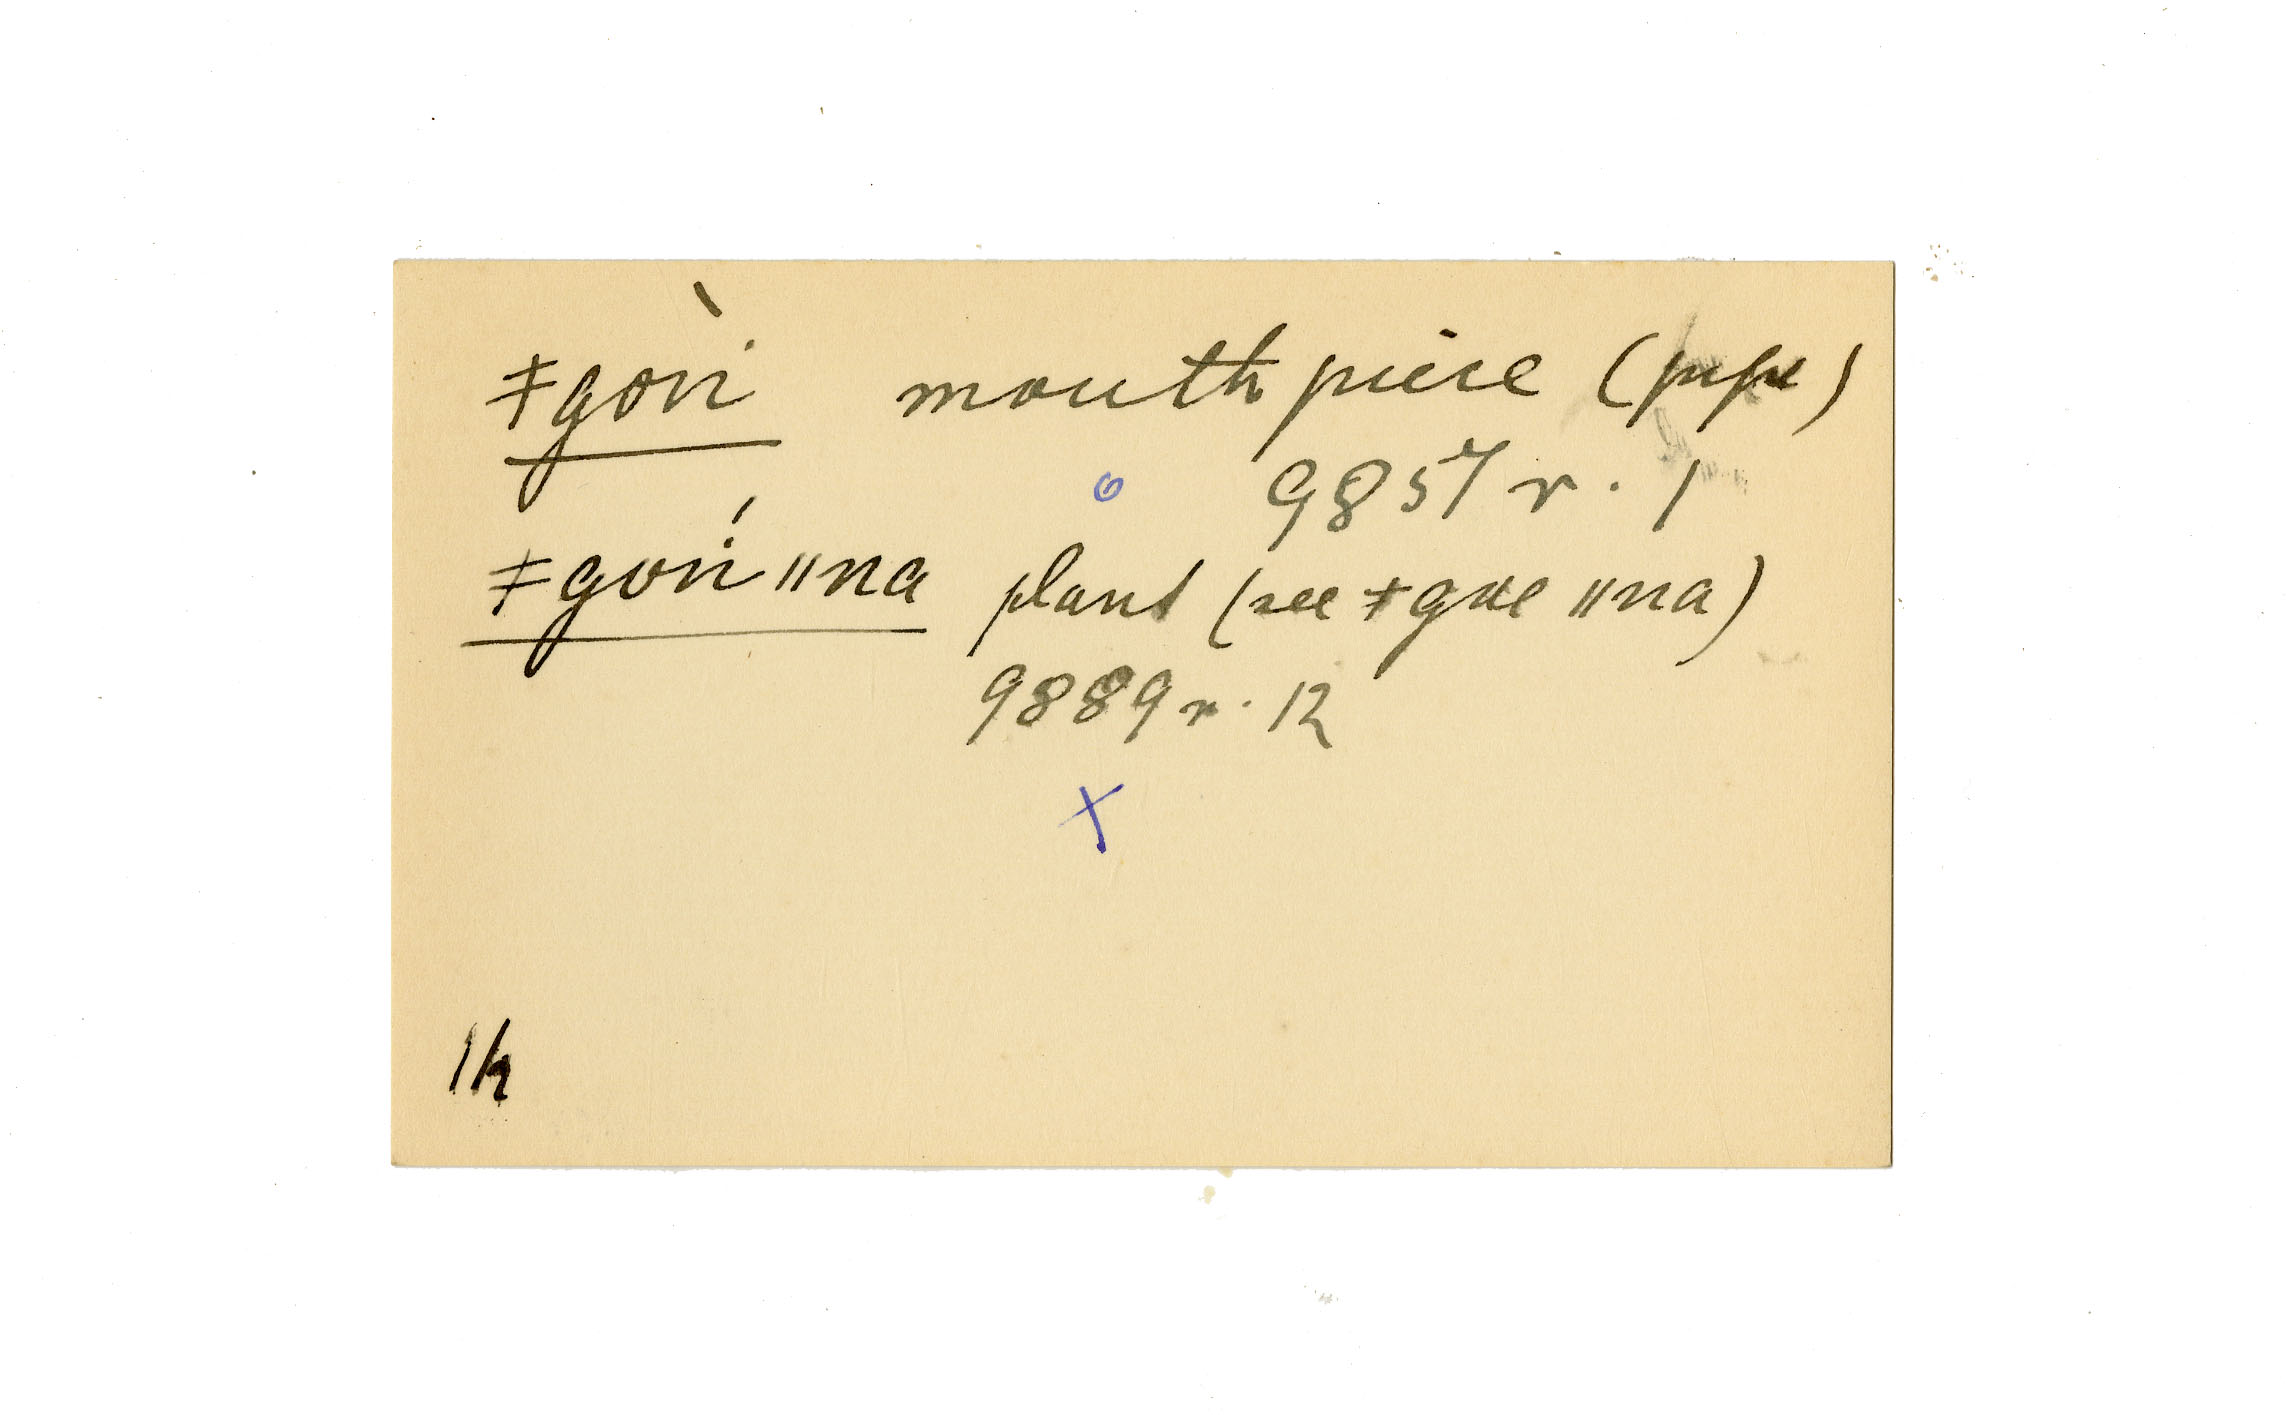 ǂgoǹ mouth piece (pipe)
9857 r. 1
ǂgoń ǁna plant (see ǂgoe ǁna)
9889 r. 12
X